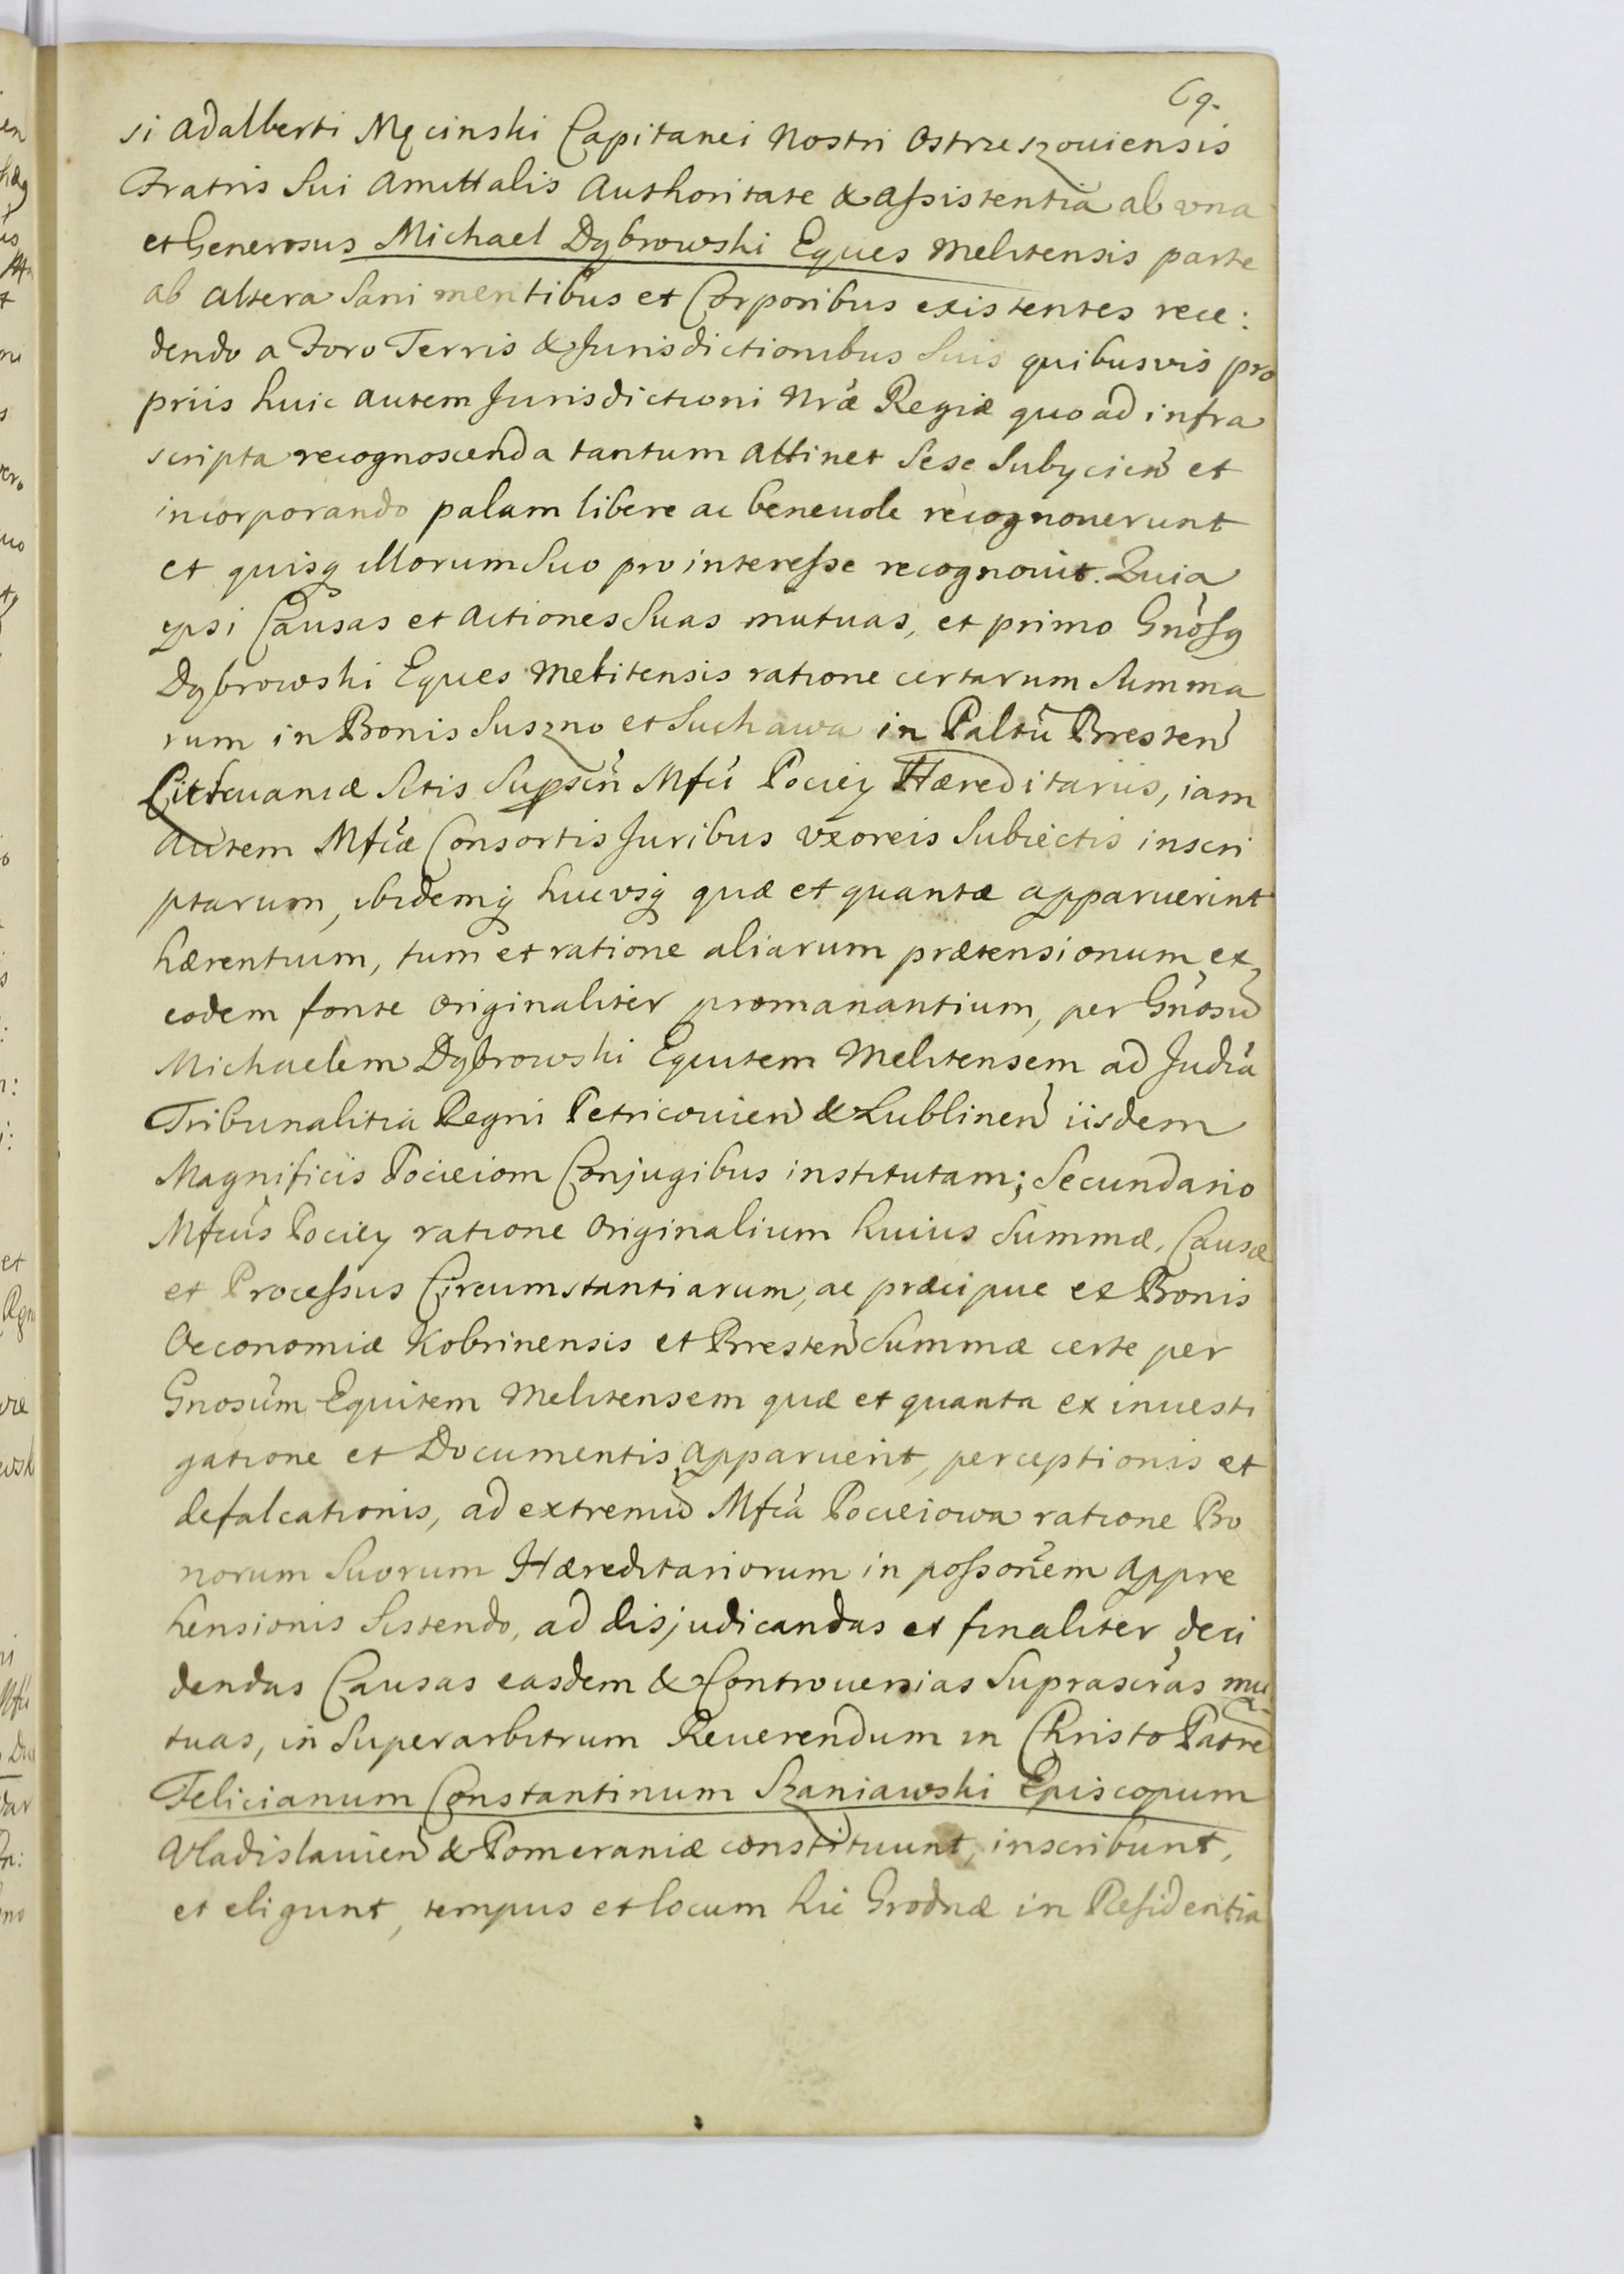 69.
si Adalberti Męcinski Capitanei Nostri Ostrzeszouiensis
Fratris Sui Amittalis Authoritate & Assistentia ab vna
et Generosus Michael Dąbrowski Eques Melitensis parte
ab altera Sani mentibus et Corporibus existentes rece:
dendo a Foro Terris & Jurisdictionibus Suis quibusvis pro
priis huic autem Jurisdictioni Nræ Regiæ quo ad infra
scripta recognoscenda tantum attinet Sese Subycień et
incorporando palam libere ac beneuole recognouerunt
et quisq illorum Suo pro interesse recognouit. Quia
ypsi Causas et Actiones Suas mutuas, et primo Gnosq
Dąbrowski Eques Melitensis ratione certarum Summa
rum in Bonis Suszno et Suchawa in Paltu Bresten
Littuaniæ Sitis Supscń Mfci Pociey Hæreditariis, iam
autem Mfcæ Consortis Juribus vxoreis Subiectis inscri
ptarum, ibidemq hucvsq quæ et quantæ apparuerint
hærentium, tum et ratione aliarum prætensionum, ex
eodem fonte originaliter promanantium, per Gnosu
Michaelem Dąbrowski Equitem Melitensem ad Judia
Tribunalitia Regni Petricouien & Lublinen iisdem
Magnificis Pocieiom Conjugibus institutam; Secundario
Mfcus Pociey ratione Originalium huius Summæ, Causæ
et Processus Circumstantiarum, ac præcipue ex Bonis
Oeconomiæ Kobrinensis et Bresten Summæ certe per
Gnosum Equitem Melitensem quæ et quanta ex inuesti
gatione et Documentis apparuerit, perceptionis et
defalcationis, ad extremu Mfca Pocieiowa ratione Bo
norum Suorum Hæreditariorum in possonem Appre
hensionis Sistendo, ad disjudicandas et finaliter deci
dendas Causas easdem & Controuersias Suprascras mu
tuas, in Superarbitrum Reuerendum in Christo Patre
Felicianum Constantinum Szaniawski Episcopum
Vladislauien & Pomeraniæ constituunt, inscribunt,
et eligunt, tempus et locum hic Grodnæ in Residentia